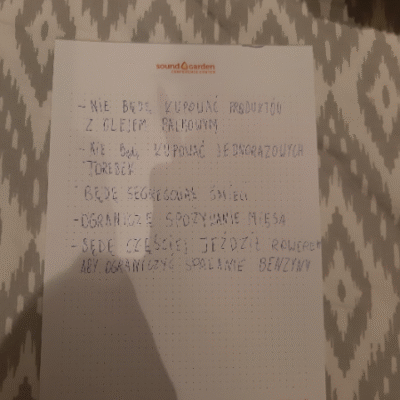 soundgarden
- NIE BĘDĘ KUPOWAĆ PRODUKTÓW
Z OLEJEM PALMOWYM
- NIE BĘDĘ KUPOWAĆ JEDNORAZOWYCH
TOREBEK
BĘDĘ SEGREGOWAŁ ŚMIECI
- OGRANICZĘ SPOŻYWANIE MIĘSA
- BĘDĘ CZĘŚCIEJ JEŹDZIŁ ROWEREM
ABY OGRANICZYĆ SPALANIE BENZYNY